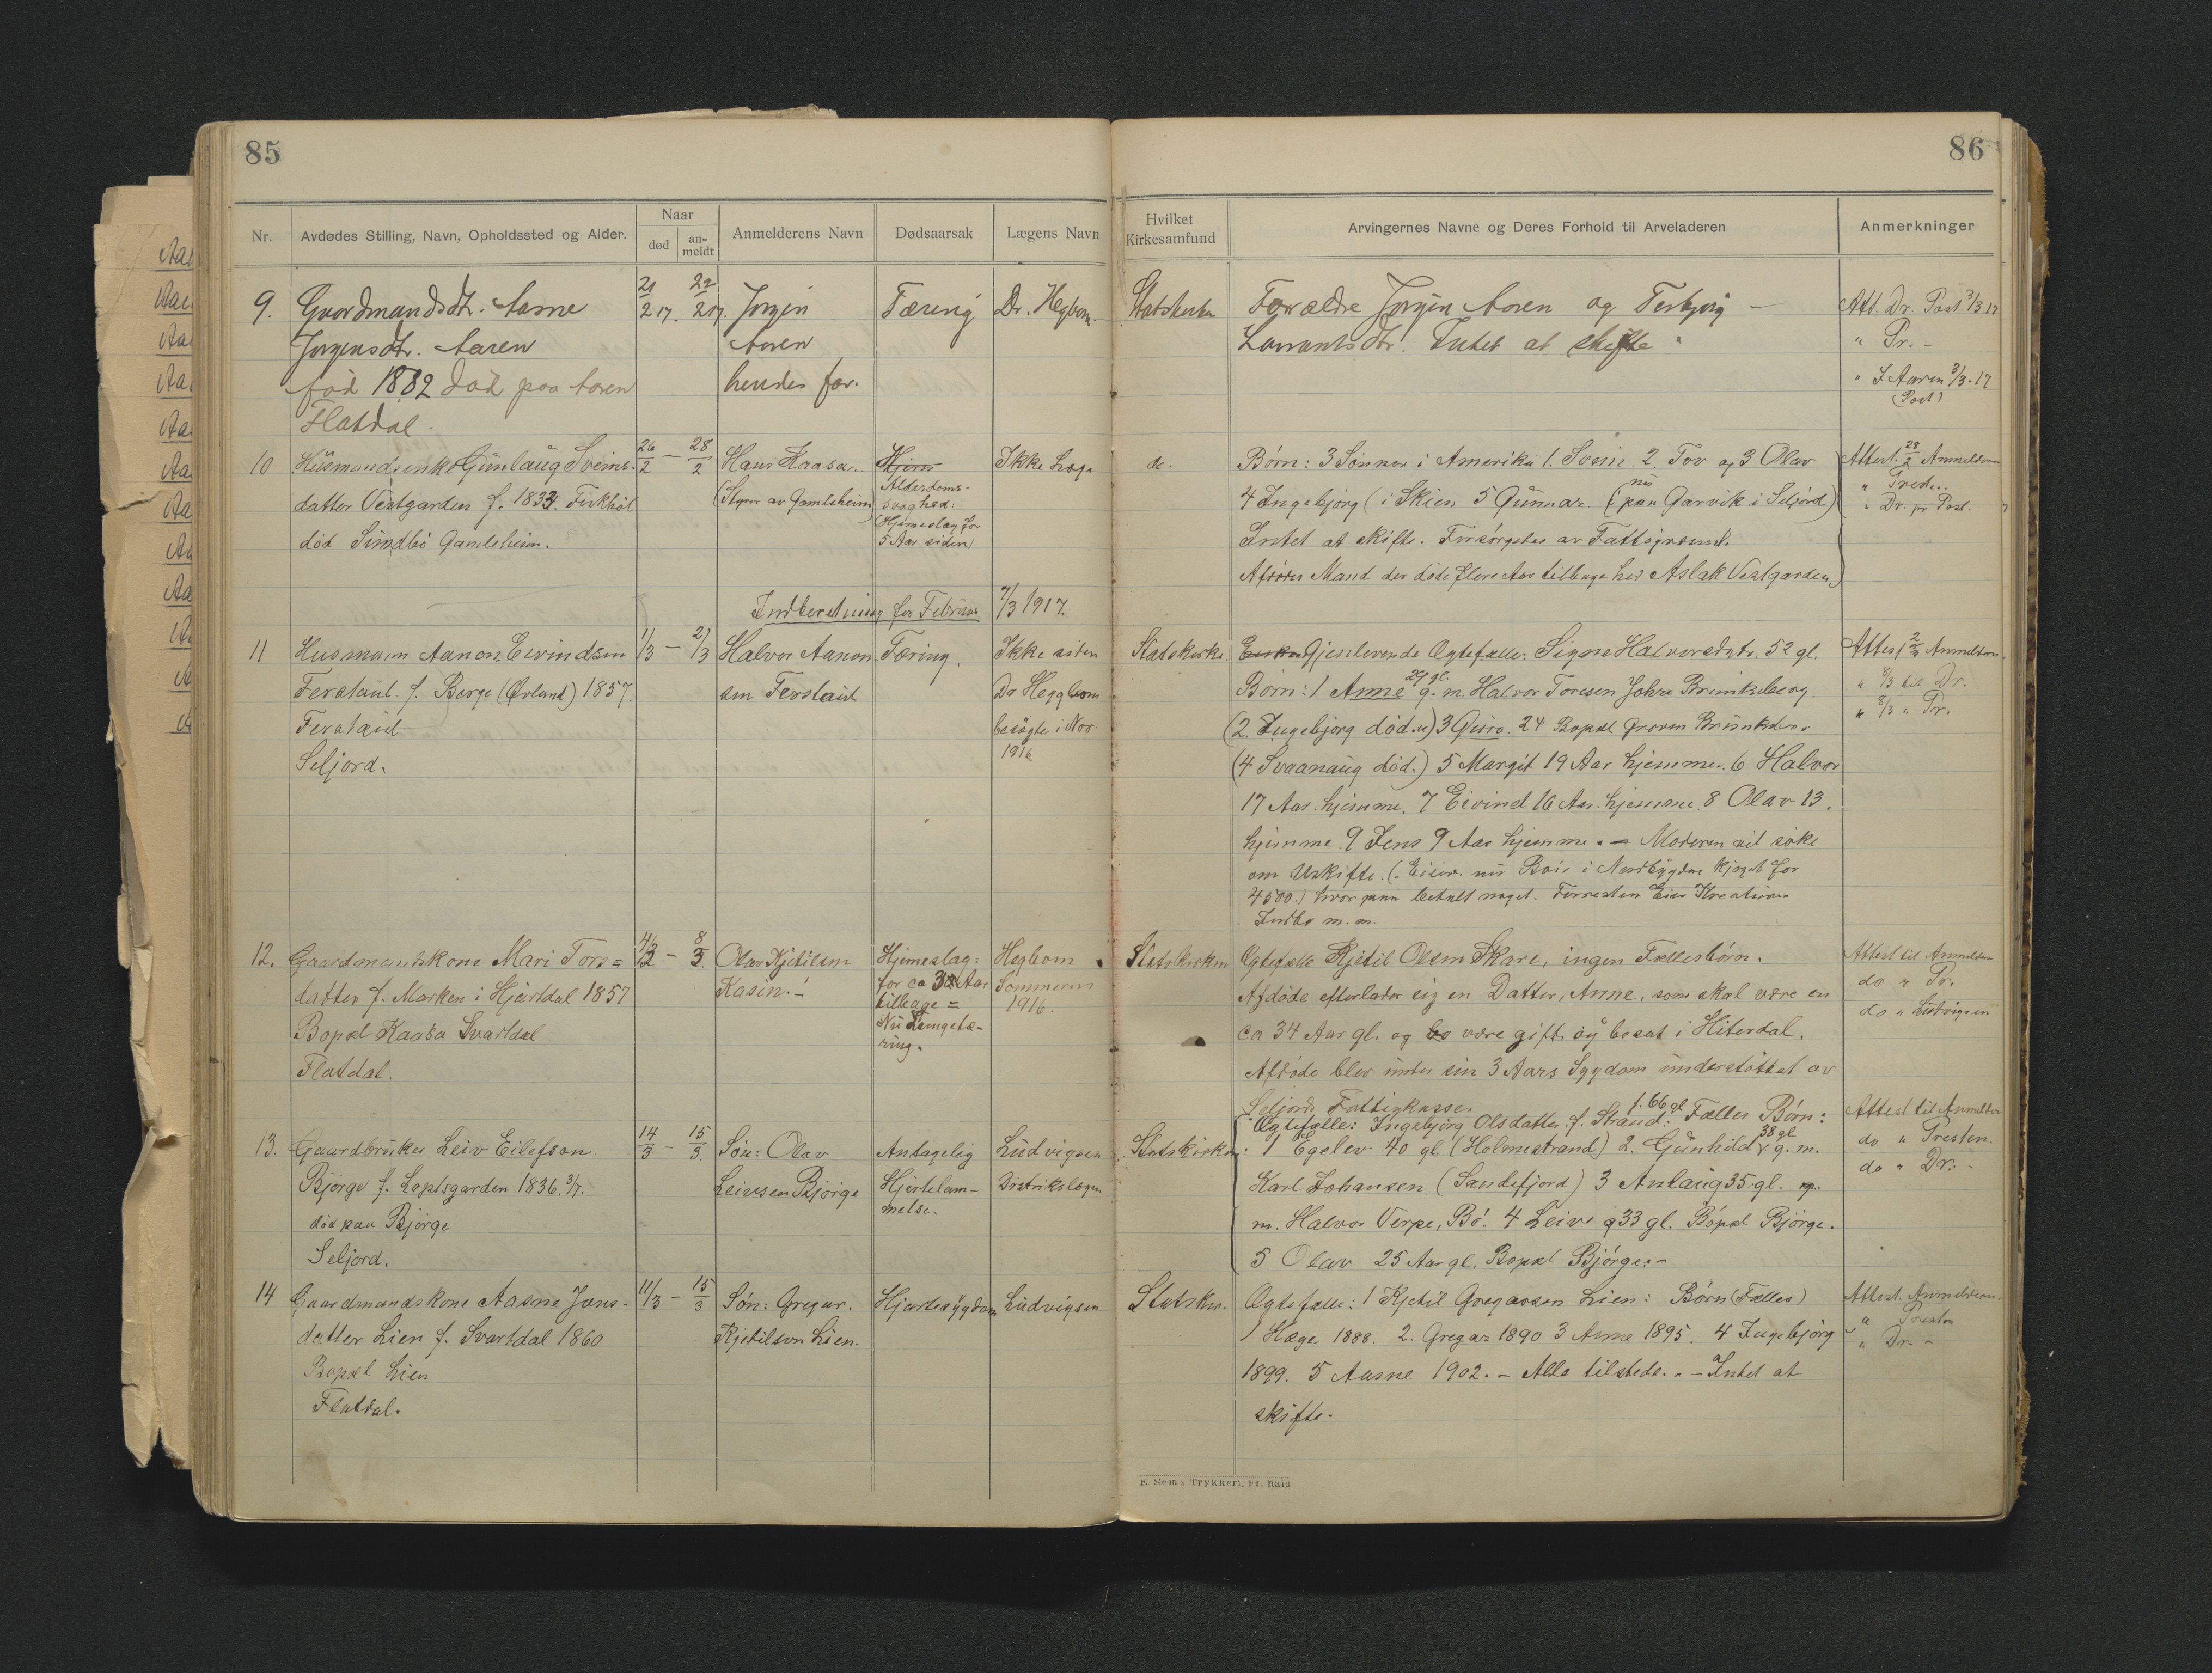 85
Nr.
Avdødes Stilling, Navn, Opholdssted og Alder.
Naar
død
an-
meldt
Anmelderens Navn
Dødsaarsak
Lægens Navn
9. Gaardmandsdtr. Aasne 21/2 17. 22/2 17. Jørgen Tæring Dr. Hegbom.
Jørgensdtr. Aaren Aaren
født 1882 død paa Aaren hendes far.
Flatdal.
10 Husmandsenke Gunlaug Sveins- 26/2 - 28/2 Hans Kaasa. Hjern Ikke Læge
datter Vestgarden f. 1833. (Styrer av Gamleheim) Alderdoms-
svaghed:
død Sundbö Gamleheim. (Hjerneslag for
5 Aar siden)
Indberetning for Februar 7/3 1917.
11 Husmann Aanon Eivindsen 1/3 - 2/3 Halvor Aanon- Tæring. Ikke siden
Ferstaul f. Berge 1857. sen Ferstaul Dr Heggbom
Ferstaul besøgte i Nov
Seljord. 1916
12. Gaardmandskone Mari Tors= 4/3 - 8/3 Olav Kjetilsen Hjerneslag: Hegbom
datter f. Marken i Hjartdal 1857 Kasin.- for ca 3 Aar Sommeren
tilbage = 1916.
Bopæl Kaasa Svartdal Nu Lungetæ-
ring.
Flatdal.
13. Gaardbruker Leiv Eilefson 14/3 - 15/3 Søn: Olav Antagelig Ludvigsen
Bjørge f. Loptsgarden 1836. 3/7. Leivsen Bjørge Hjertelam- Distriktslægen
melse.
død paa Bjørge
Seljord.
14 Gaardmandskone Aasne Jons- 11/3 - 15/3 Søn: Gregar. Hjertesygdom Ludvigsen
datter Lien f. Svartdal 1860 Kjetilson Lien.
Bopæl Lien
Flatdal.
86
Hvilket
Kirkesamfund
Arvingernes Navne og Deres Forhold til Arveladeren
Anmerkninger
Statskirken Forældre Jørgen Aaren og Torbjørg — Att. Dr. Post 3/3 17
Intet at skifte " Pr. -
" J Aaren 3/3-17
(Post)
do. Børn: 3 Sønner i Amerika 1. Svein 2. Tov og 3 Olav Attest. 28/2 Anmelderen
4 Ingebjörg (i Skien 5 Gunnar (nu paa Garvik i Seljord) " Presten.
" Dr. pr Post.
Intet at skifte. Forsørgedes av Fattigvæsenet.
Afdødes Mand der døde flere Aar tilbage hed Aslak Vestgarden)
Statskirke. Gjenlevende Ægtefælle: Signe Halvorsdtr. 52 gl. Attest 2/3 Anmelderen.
Børn: 1 Anne 29 gl. g. m. Halvor Toresen " 8/3 til Dr.
(2. Ingebjørg død.) 3 Guro. 24 Bopæl " 8/3 " Pr.
(4 Svaanaug död.) 5 Margit 19 Aar hjemme. 6 Halvor
17 Aar. hjemme. 7 Eivind 16 Aar. hjemme 8 Olav 13.
hjemme. 9 Jens 9 Aar hjemme. — Moderen vil søke
om Uskifte. (Eier nu i Nordbygden kjøpt for
4500.) hvor paa betalt noget. Forresten Eier Kreaturer
Indbo m. m.
Statskirken Ægtefælle Kjetil Olsen Skare, ingen Fællesbørn. Attest til Anmelder
Afdøde efterlader sig en Datter, Anne, som skal være en do " Pr.
ca 34 Aar gl. og være gift og bosat i Hiterdal. do " Ludvigsen
Afdøde blev under sin 3 Aars Sygdom understøttet av
Seljords Fattigkasse.
Ægtefælle: Ingebjørg Olsdatter f. Strand: f. 66 gl Fælles Børn: Attest til Anmelder
Statskirken: 1 Egelev 40 gl. (Holmestrand) 2. Gunhild 38 gl g. m. do " Presten.
Karl Johansen (Sandefjord) 3 Anlaug 35 gl. g. do " Dr. -
m. Halvor Verpe, Bø. 4 Leive 33 gl. Bopæl Bjørge.
5 Olav 25 Aar gl. Bopæl Bjørge.-
Statskir. Ægtefælle: 1 Kjetil Gregarsen Lien: Børn (Fælles) Attest. Anmelderen.
1 Hæge 1888. 2. Gregar 1890 3 Anne 1895. 4 Ingebjörg " Presten
1899. 5 Aasne 1902. - Alle tilstede. - Intet at " Dr. -
skifte.
E. Sem's Trykkeri, Fr. hald.